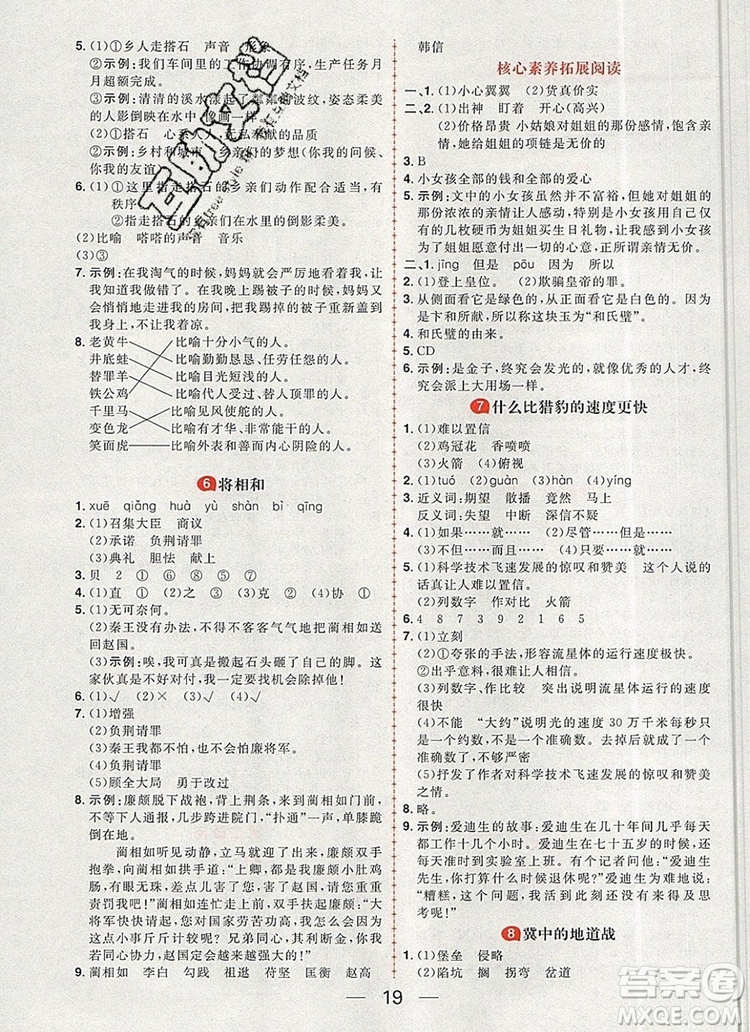 5. (1)①乡人走搭石 声音
②示例:我们车间的工人协调有序,本月
超额完成。
③示例:清清的溪水漾起了粼粼的波纹,姿态柔美
的人影倒映在水中,像画一样。
(2)①搭石 心
无私奉献的品质
②示例:乡村和城市 乡亲们的梦想(你我的问候、
你我的友谊)
6. (1)①这里指走搭石的乡亲们动作配合适当,有
秩序。
②指走搭石的乡亲们在水里的倒影柔美。
(2)比喻 嗒嗒的声音 音乐
(3)③
7. 示例:在我淘气的时候,妈妈就会严厉地看着我,让
我知道我做错了。在我晚上睡着的时候,妈妈又
会悄悄地走进我的房间,把我踢掉的被子重新盖到
我身上,不让我着凉。
8. 老黄牛 比喻十分小气的人。
井底蛙 比喻勤勤恳恳、任劳任怨的人。
替罪羊 比喻目光短浅的人。
铁公鸡 比喻代人受过、替人顶罪的人。
千里马 比喻见风使舵的人。
变色龙 比喻非常能干的人。
笑面虎 比喻外表和善而内心阴险的人。
6 将相和
1. xuē qiǎng huà yù shàn bì qīng
2. (1)召集大臣 商议
(2)承诺 负荆请罪
(3)典礼 胆怯 献上
3. 贝 2 ① ⑥ ② ⑤
4. (1)直 ① (2)之 ③ (3)负 ①
5. (1)无可奈何。
(2)秦王没有办法,不得不客客气气地把蔺相如送
回赵国。
(3)示例:唉,我可真是搬起石头砸了自己的脚。这
赵王真是不好对付,我一定要想机会除掉他!
6. (1)√ (2)× (3)× (4)√
7. (1)增强
(2)负荆请罪
(3)秦王我都不怕,我会怕廉将军吗?
(4)负荆请罪
(5)顾全大局 勇于改过
8. 示例:廉颇脱下战袍,背上荆条,来到蔺相如门前,
不等下人通报,几步跨进院门,“扑通”一声,单膝
跪倒在地。
蔺相如听见动静,立马走出来,看到廉颇双手
抱拳,蔺相如拱手道:“上卿,都怪我廉颇小肚鸡
肠,有眼无珠,还出言不逊,真是罪该万死,请您重
重责罚我吧!”蔺相如一听,连忙双手扶起道:“大
将军快快请起,您为赵国立下了汗马功劳,我怎能
责罚您呢?您保家卫国劳苦功高,我怎会因为这
点小事斤斤计较,兄弟同心,其利断金!我们齐心
协力,赵国定会更加强大!”
9. 蔺相如 李白 勾践 祖逖 苻坚 匡衡 赵括
韩信
核心素养拓展阅读
一、1. (1)小心翼翼 (2)货真价实
2. (1)出神 盯着 开心(高兴)
(2)价格昂贵 小姑娘对姐姐的那份感情,饱含亲
情、她给姐姐的那份亲情无价
3. B
4. 小女孩全部的钱和全部的爱心
5. 示例:文中的小女孩虽然并不富裕,但她对姐姐的
那份浓浓的亲情让人感动,特别是小女孩用自己仅
有的几枚硬币为姐姐买生日礼物,让我看到了她
为了姐姐愿意付出一切的心意,正所谓亲情无价。
二、1. jīng 但是 pōu 因为 所以
2. (1)登上皇位。 (2)欺骗皇帝的罪。
3. 从侧面看它是绿色的,从正面看它是白色的,卞和
是第一个发现并贡献,所以这块玉为“和氏璧”。
4. 和氏璧的由来。
5. CD
6. 示例:是金子,终究会发光的,就像优秀的人才,终
究会派上大用场一样。
7 什么比猎豹的速度更快
1. (1)难以置信
(2)鸡冠花 香喷喷
(3)火箭 (4)俯视
2. (1)dá (2)guàn (3)hàn (4)yíng
3. 近义词:期望 散播 竟然 马上
反义词:失望 中断 深信不疑
4. (1)如果……就…… (2)尽管……
(3)不但……而且…… (4)只要……就……
5. (1)科学技术飞速发展的惊叹和赞美 这个人说的
话真让人难以置信。
(2)列数字 作对比 火箭
6. 4 8 7 3 9 2 1 6 5
7. (1)立刻
(2)①夸张的手法,形容流星体的运行速度极快。
②出乎意料,很难相信。突出流星体运行的速度
之快。
(3)列数字 作比较
(4)不能 “大约”说明光的速度 30 万千米每秒只
是一个约数,不是一个准确数。去掉后就成了准
确数,不够严谨。
(5)抒发了作者对科学技术飞速发展的惊叹和赞美
之情。
8. 略。
9. 示例:爱迪生的故事:爱迪生在几十年间几乎每天
都工作十几个小时。爱迪生在七十五岁的时候,
每天还准时到实验室上班。有个记者问他:“爱迪
生先生,你打算什么时候退休呢?”爱迪生遗憾地说:
“糟糕,这个问题我活到此刻还没来得及
考虑呢!”
8 冀中的地道战
1. (1)堡垒 侵略
(2)陷坑 搁 拐弯 岔道
19
答案圈
MXQE.COM